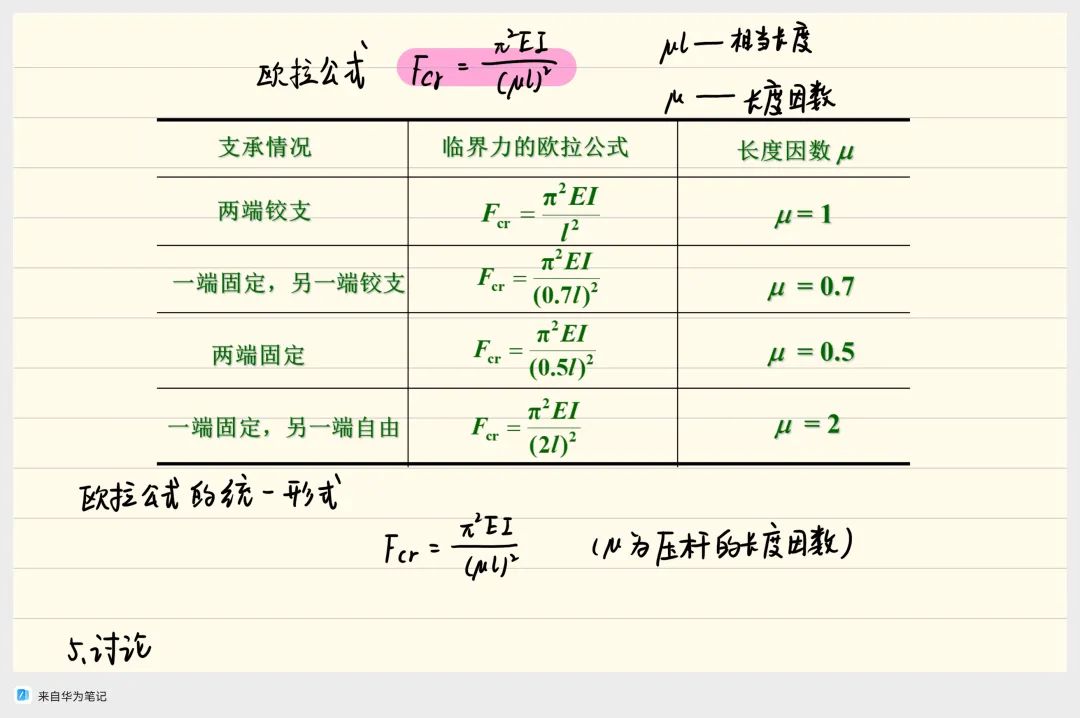 欧拉公式 Fcr = π²EI/(μl)² μl — 相当长度
μ — 长度因数
支承情况 临界力的欧拉公式 长度因数 μ
两端铰支 Fcr = π²EI/l² μ = 1
一端固定，另一端铰支 Fcr = π²EI/(0.7l)² μ = 0.7
两端固定 Fcr = π²EI/(0.5l)² μ = 0.5
一端固定，另一端自由 Fcr = π²EI/(2l)² μ = 2
欧拉公式的统一形式
Fcr = π²EI/(μl)² (μ为压杆的长度因数)
5.讨论
来自华为笔记